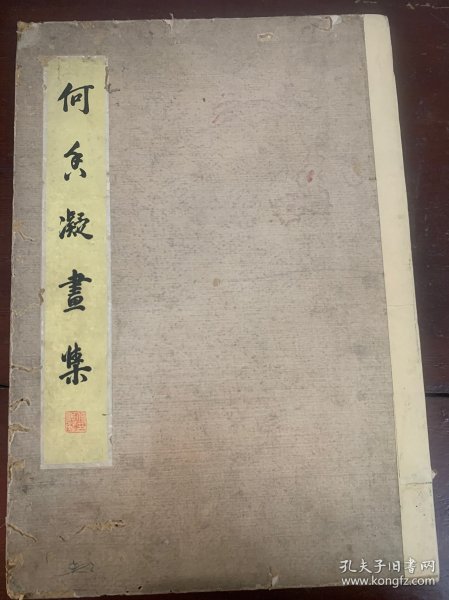 何香凝畫集
孔夫子旧书网
www.kongfz.com